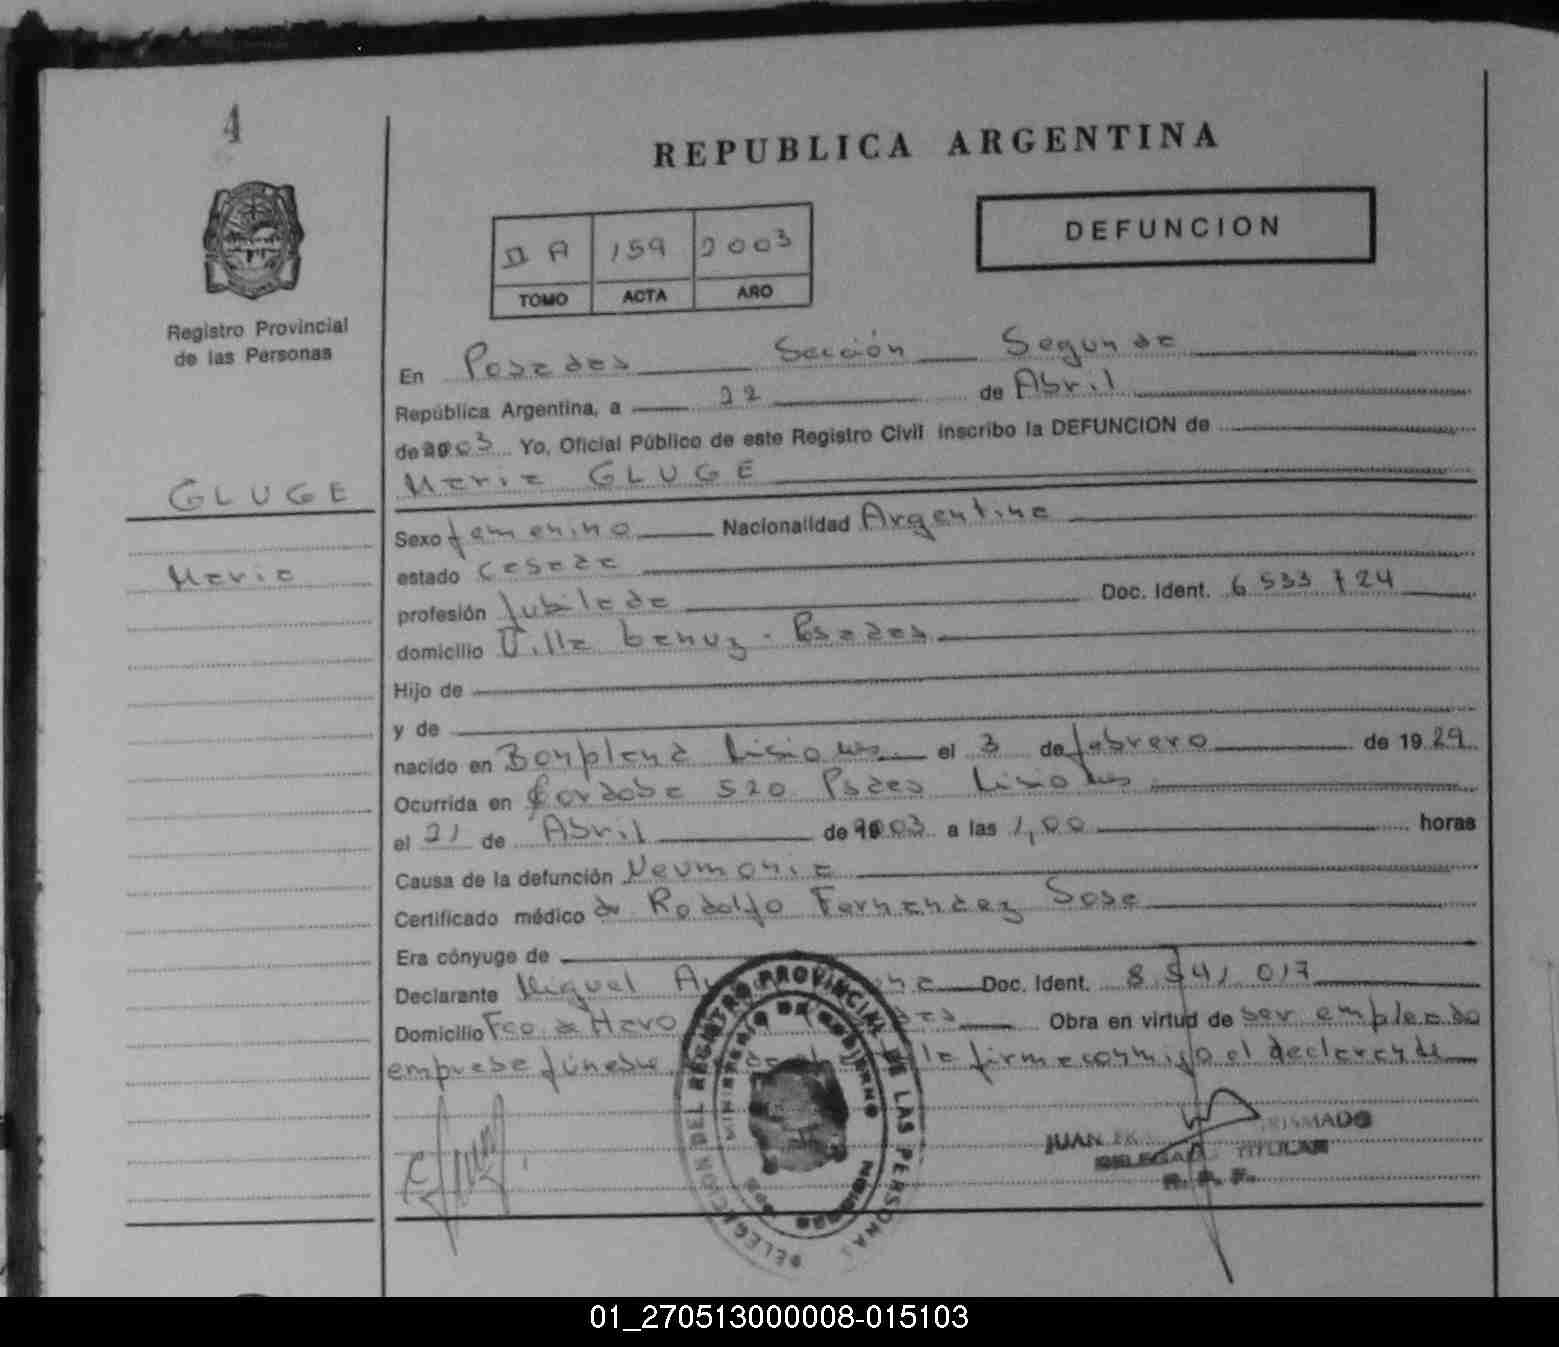 4
REPUBLICA ARGENTINA
DEFUNCION
II A 159 2003
TOMO ACTA AÑO
Registro Provincial
de las Personas
En Posadas Sección Segunda
República Argentina, a 22 de Abril
de 2003 Yo, Oficial Público de este Registro Civil inscribo la DEFUNCION de
GLUGE
Maria GLUGE
Maria
Sexo femenino Nacionalidad Argentina
estado casada
profesión Jubilada Doc. Ident. 6 533 724
domicilio Villa Posadas
Hijo de
y de
nacido en Bonpland Misiones el 3 de febrero de 1929
Ocurrida en Cordoba 520 Psdas Misiones
el 21 de Abril de 2003 a las 1,00 horas
Causa de la defunción Neumonia
Certificado médico dr Rodolfo Fernandez Sosa
Era cónyuge de
Declarante Miguel Doc. Ident. 8 541 017
Domicilio Fco de Haro Obra en virtud de ser empleado
empresa fúnebre la firma conmigo el declarante
JUAN
DELEGADO TITULAR
R. P. P.
DELEGACION DEL REGISTRO PROVINCIAL DE LAS PERSONAS
MINISTERIO DE GOBIERNO
MISIONES
01_270513000008-015103